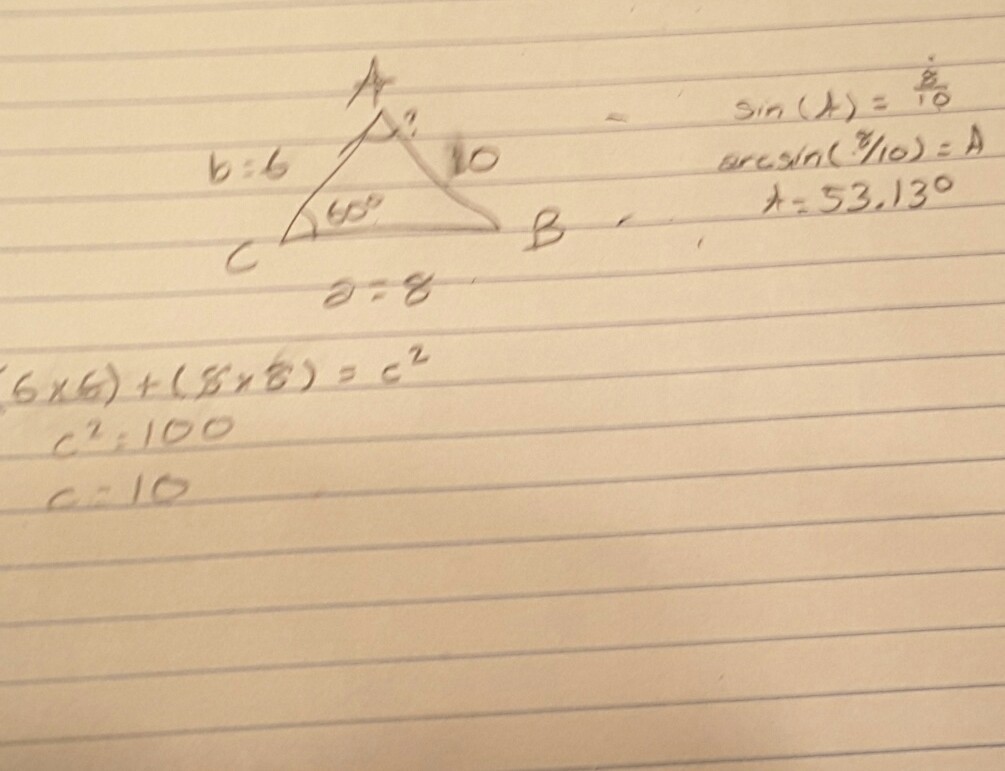 A
?
b=6
10
60°
C
B
a=8
sin(A) = 8/10
arcsin(8/10) = A
A=53.13°
(6×6)+(8×8) = c²
c²=100
c=10